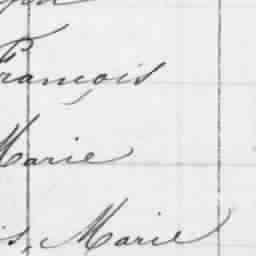 François
Marie
s, Marie